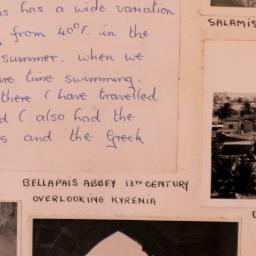 as has a wide variation
from 40°F. in the
summer, when we
time swimming.
there I have travelled
I also had the
and the Greek
SALAMIS
BELLAPAIS ABBEY 13TH CENTURY
OVERLOOKING KYRENIA